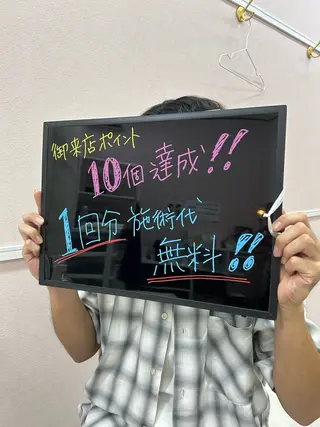 御来店ポイント
10個達成!!
1回分施術代
無料!!